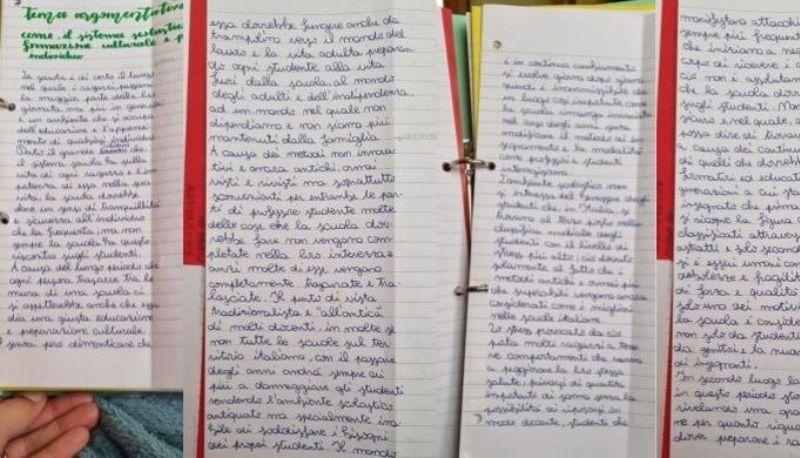 Tema argomentativo
come il sistema scolastico
formazione culturale e p
individuo
La scuola è di certo il luogo
nel quale i ragazzi passano
la maggior parte della loro
giornata, ma più in generale
è un ambiente che si occupa
dell'educazione e l'apprendi-
mento di qualsiasi individuo
il grande
il sistema scuola ha sulla
vita di ogni ragazzo e l'im-
portanza di essa nella pro-
vita, la scuola dovrebbe
dare un senso di tranquillità
e sicurezza all'individuo
che la frequenta, ma non
sempre la scuola ha questo
riscontro sugli studenti.
A causa del lungo periodo che
ogni persona trascorre tra le
mura di una scuola ci
si aspetterebbe anche che essa
dia una giusta educazione
e preparazione culturale,
senza però dimenticare che
essa dovrebbe fungere anche da
trampolino verso il mondo del
lavoro e la vita adulta preparan-
do ogni studente alla vita
fuori dalla scuola, al mondo
degli adulti e dell'indipendenza,
ad un mondo nel quale non
dipendiamo e non siamo più
mantenuti dalla famiglia.
A causa dei metodi non innova-
tivi e ancora antichi, ormai
visti e rivisti ma soprattutto
sconvenienti per entrambe le par-
ti di professore studente molte
delle cose che la scuola dov-
rebbe fare non vengono com-
pletate nella loro interezza e
anzi molte di esse vengono
completamente trascurate e tra-
lasciate. Il punto di vista
tradizionalista e "all'antica"
di molti docenti, in molte se
non tutte le scuole sul ter-
ritorio italiano, con il passare
degli anni andrà sempre di
più a danneggiare gli studenti
rendendo l'ambiente scolastico
antiquato ma specialmente ina-
bile di soddisfare i bisogni
dei propri studenti. Il mondo
è in continuo cambiamento
si evolve giorno dopo giorno
quindi è inammissibile che
un luogo così importante come
la scuola rimanga invariato
nel corso degli anni senza
modificare il metodo di in-
segnamento e la modalità
con professori e studenti
interagiscono.
L'ambiente scolastico non
si interessa del benessere degli
studenti che in Italia, si
trovano al terzo posto nella
classifica mondiale degli
studenti con il livello di
stress più alto, ciò dovuto
semplicemente al fatto che i
metodi antichi e ormai più
che superabili vengono ancora
considerati come i migliori
nelle scuole italiane.
Lo stress provocato da ciò
porta molti ragazzi a tene-
re comportamenti che vanno
a peggiorare la loro stessa
salute, privarsi di quantità
importanti di sonno senza la
possibilità di riposarsi in
modo decente, studenti che
manifestano attacchi
sempre più frequent
che iniziano a neg
corpo di ricevere i
ciò non è assolutam
che la scuola dov
sugli studenti. Non
siano e nel quale, a
possa dire di trovar
a causa dei continu
di quelli che dovrebb
formatori ed educat
generazioni a cui sta
insegnato che prima
si scopre la figura
classificati attraverso
astratti e solo second
si è esseri umani con
debolezze e fragilità
di forza e qualità
solo uno dei motivi
la scuola è conside
non solo da studenti
da genitori e la nuova
di insegnanti.
In secondo luogo la
in questo periodo sto
rivelando una gra
ne per quanto rigua
dover preparare i ra